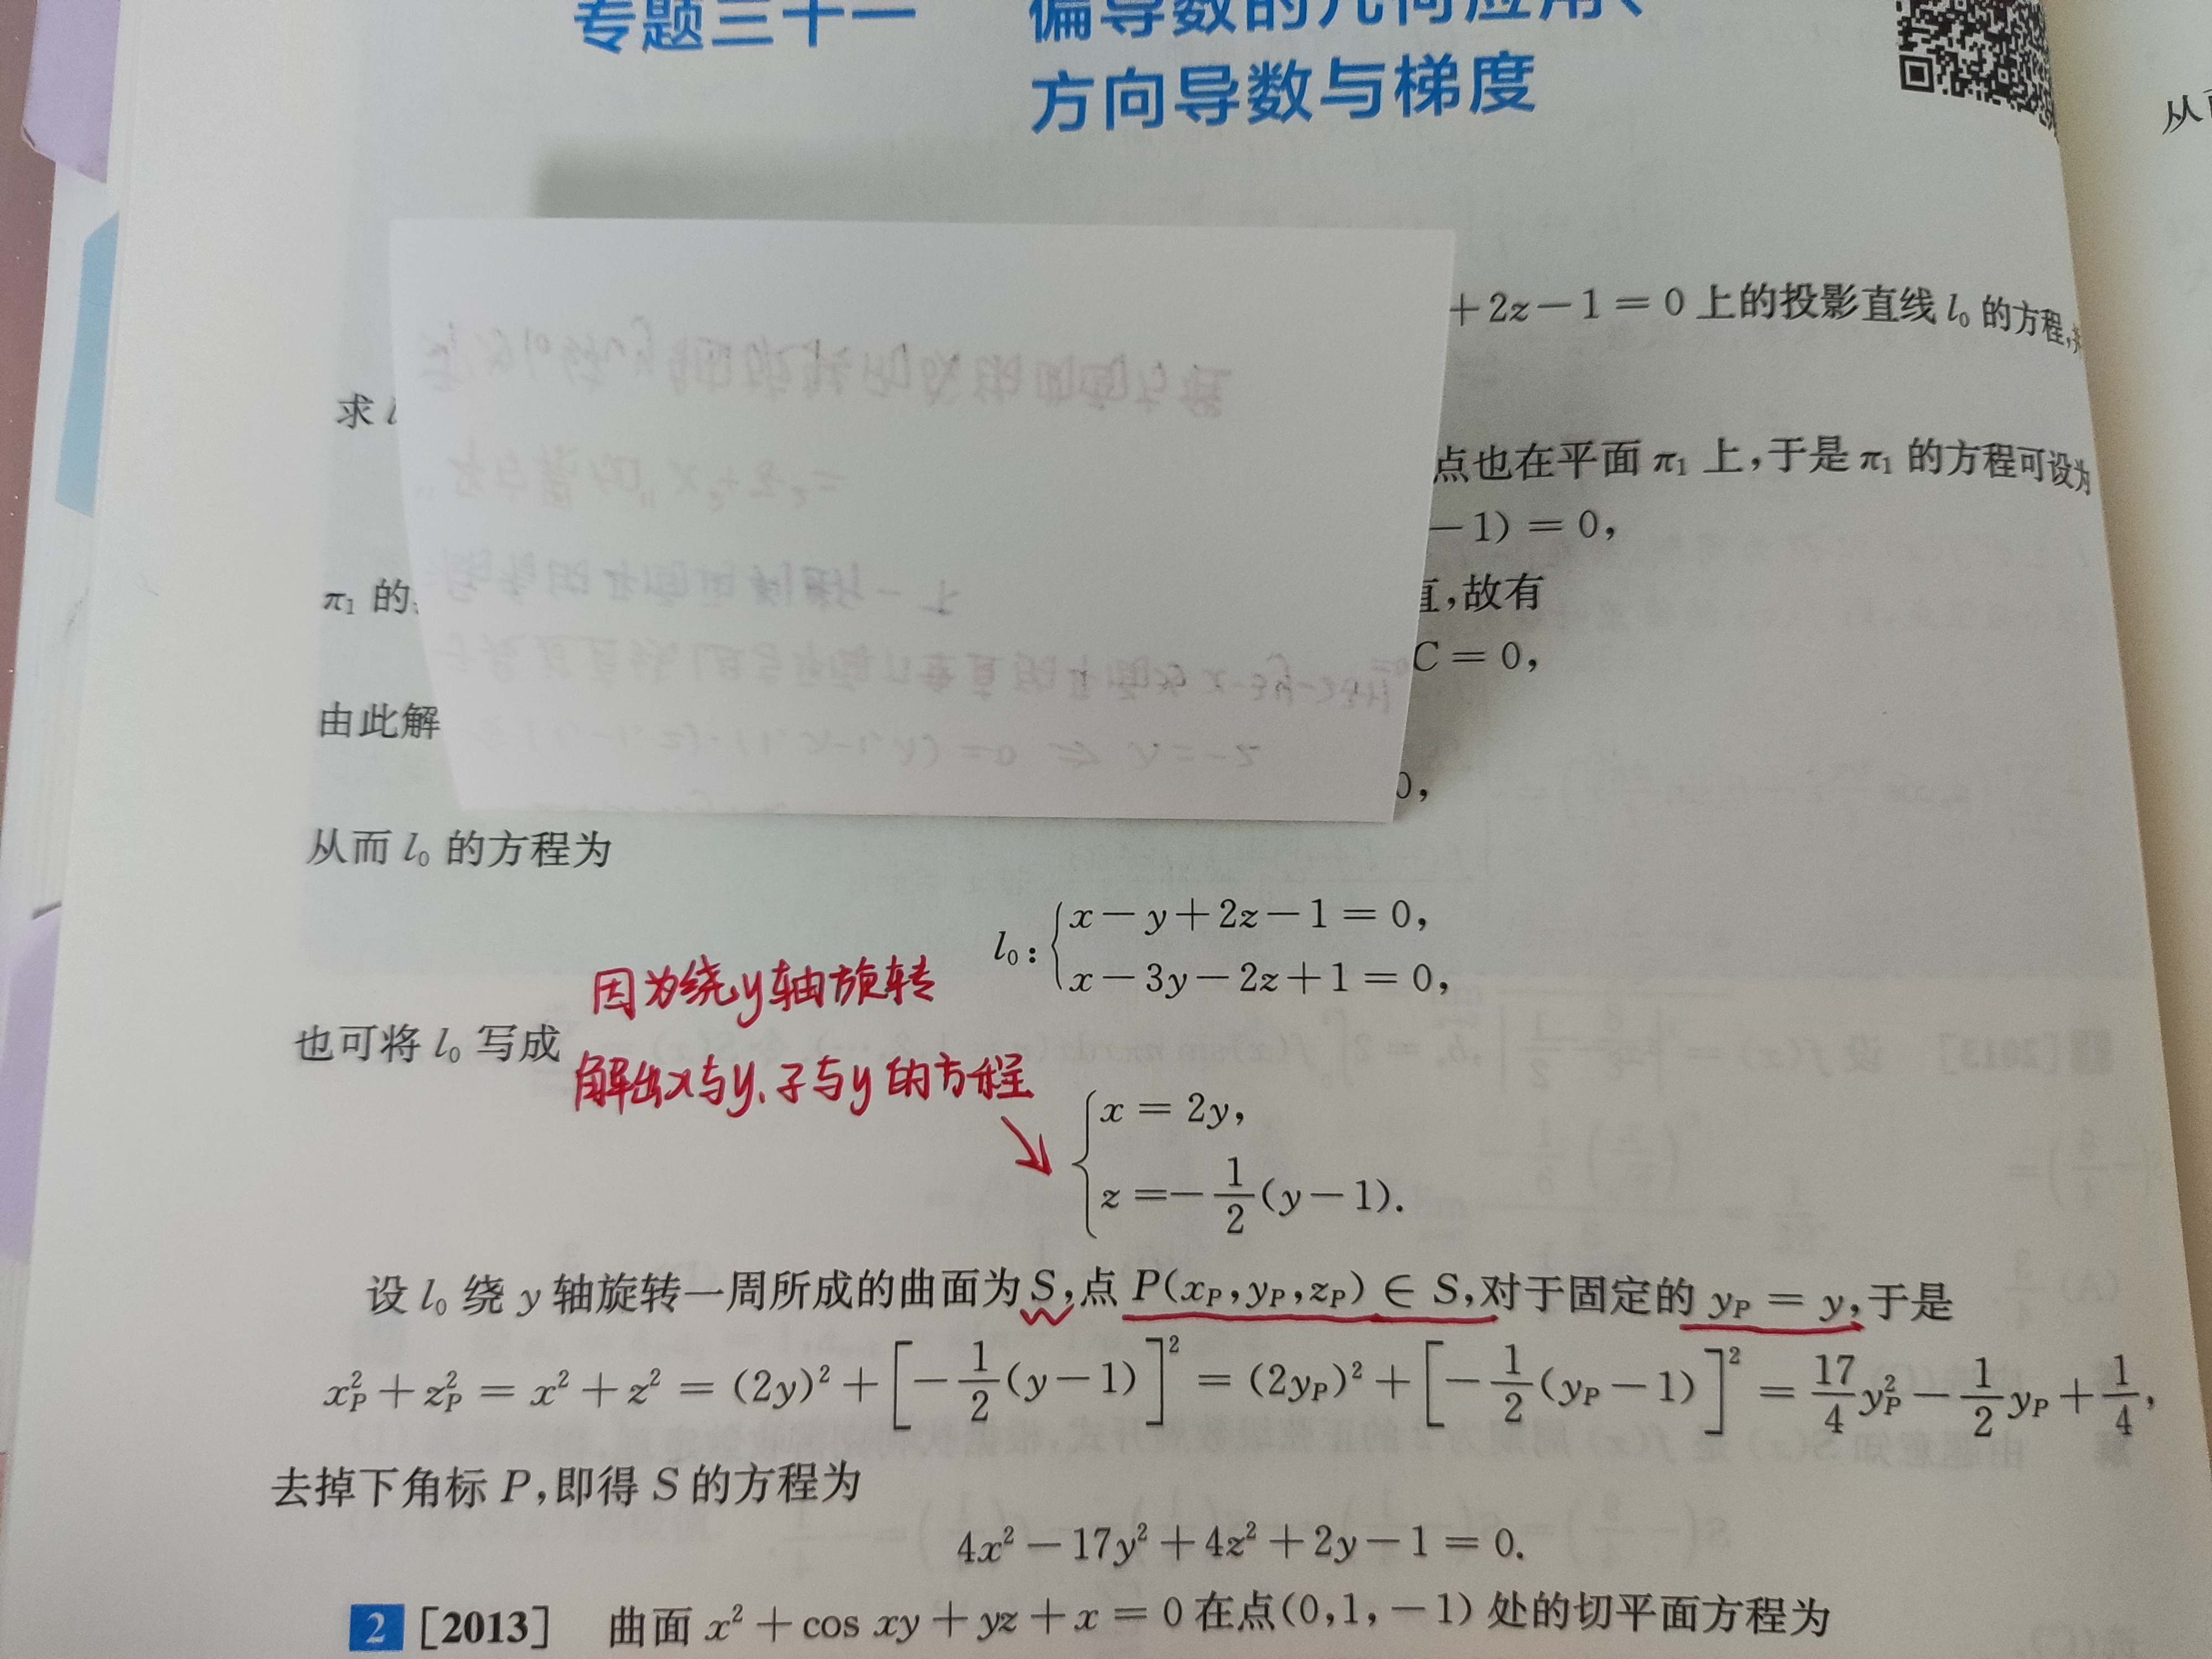 专题三十一 偏导数的几何应用、
方向导数与梯度
从
+2z-1=0上的投影直线 l₀ 的方程,
求 l
点也在平面 π₁ 上,于是 π₁ 的方程可设为
-1)=0,
π₁ 的
直,故有
C=0,
由此解
0,
从而 l₀ 的方程为
l₀: { x-y+2z-1=0,
x-3y-2z+1=0,
因为绕y轴旋转
也可将 l₀ 写成
解出x与y、z与y的方程
{ x=2y,
z=-1/2(y-1).
设 l₀ 绕 y 轴旋转一周所成的曲面为 S,点 P(x_P,y_P,z_P)∈S,对于固定的 y_P=y,于是
x_P²+z_P²=x²+z²=(2y)²+[-1/2(y-1)]²=(2y_P)²+[-1/2(y_P-1)]²=17/4y_P²-1/2y_P+1/4,
去掉下角标 P,即得 S 的方程为
4x²-17y²+4z²+2y-1=0.
2 [2013] 曲面 x²+cos xy+yz+x=0 在点(0,1,-1)处的切平面方程为